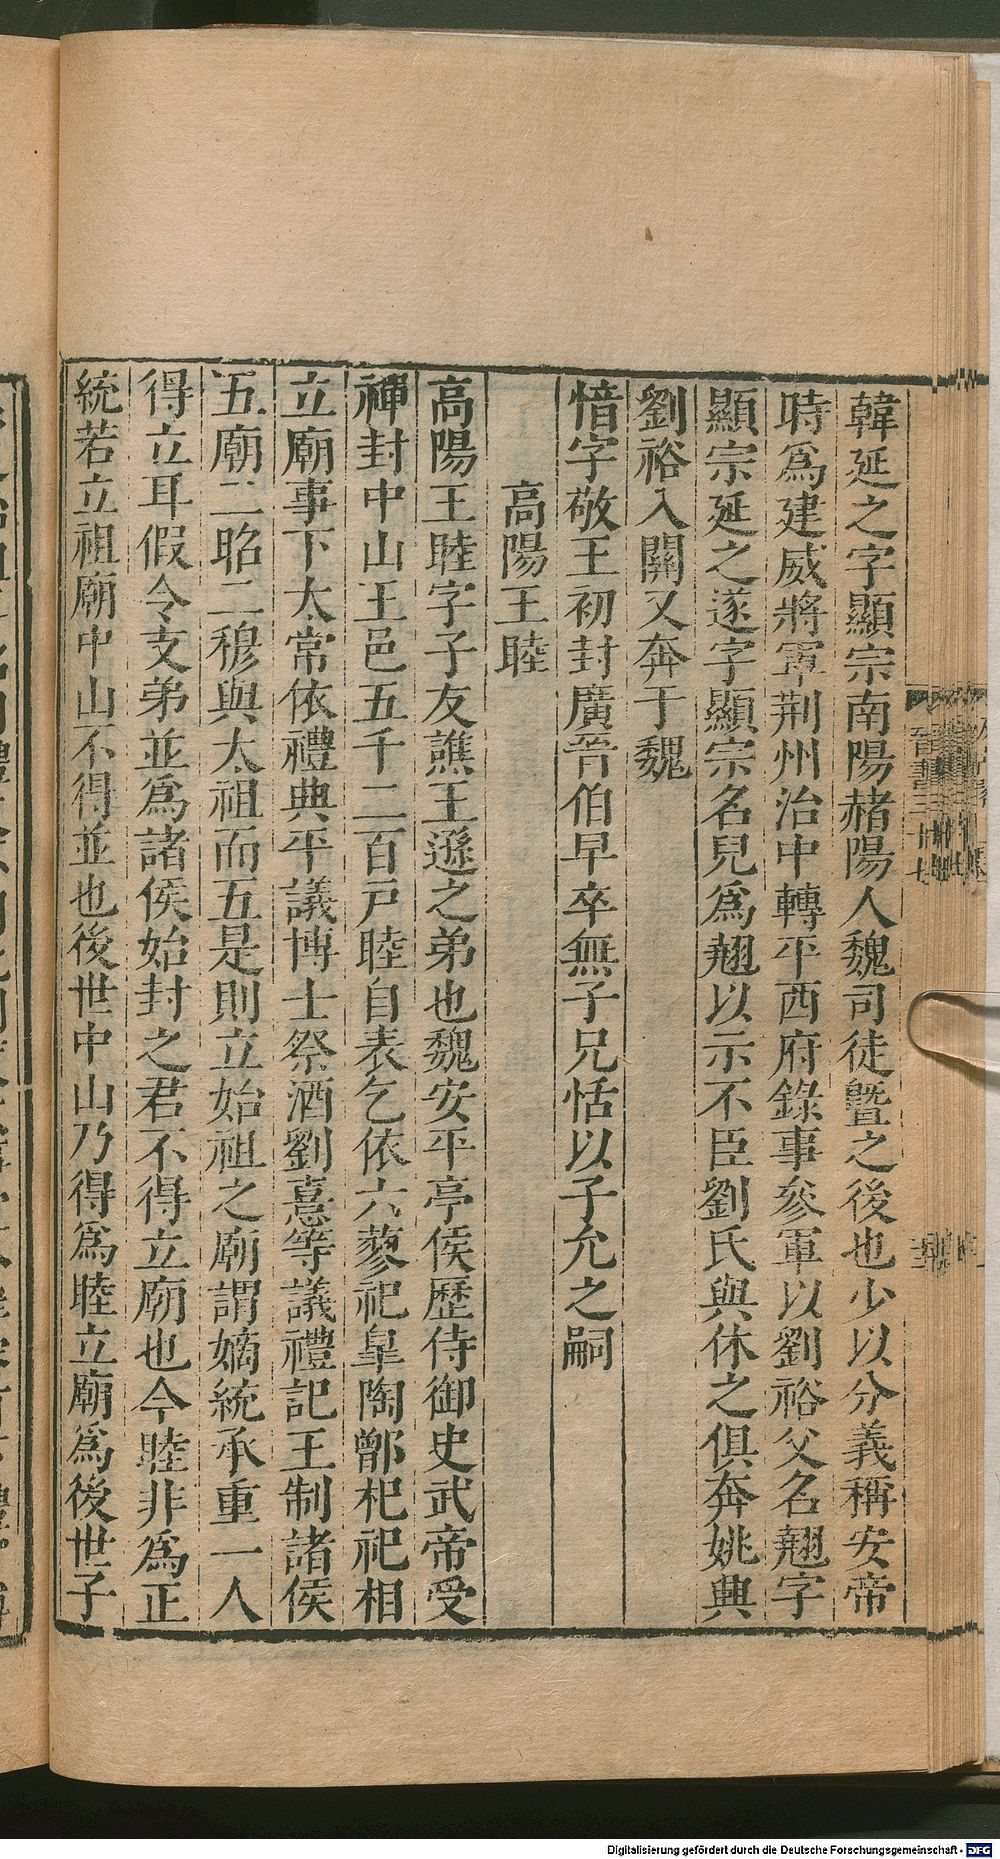 韓延之字顯宗南陽赭陽人魏司徒曁之後也少以分義稱安帝
時爲建威將軍荆州治中轉平西府錄事參軍以劉裕父名翹字
顯宗延之遂字顯宗名兒爲翹以示不臣劉氏與休之俱奔姚興
劉裕入關又奔于魏
愔字敬王初封廣晉伯早卒無子兄恬以子允之嗣
高陽王睦
高陽王睦字子友譙王遜之弟也魏安平亭侯歷侍御史武帝受
禪封中山王邑五千二百戸睦自表乞依六蓼祀皐陶鄫杞祀相
立廟事下太常依禮典平議博士祭酒劉憙等議禮記王制諸侯
五廟二昭二穆與太祖而五是則立始祖之廟謂嫡統承重一人
得立耳假令支弟並爲諸侯始封之君不得立廟也今睦非爲正
統若立祖廟中山不得並也後世中山乃得爲睦立廟爲後世子
Digitalisierung gefördert durch die Deutsche Forschungsgemeinschaft - DFG